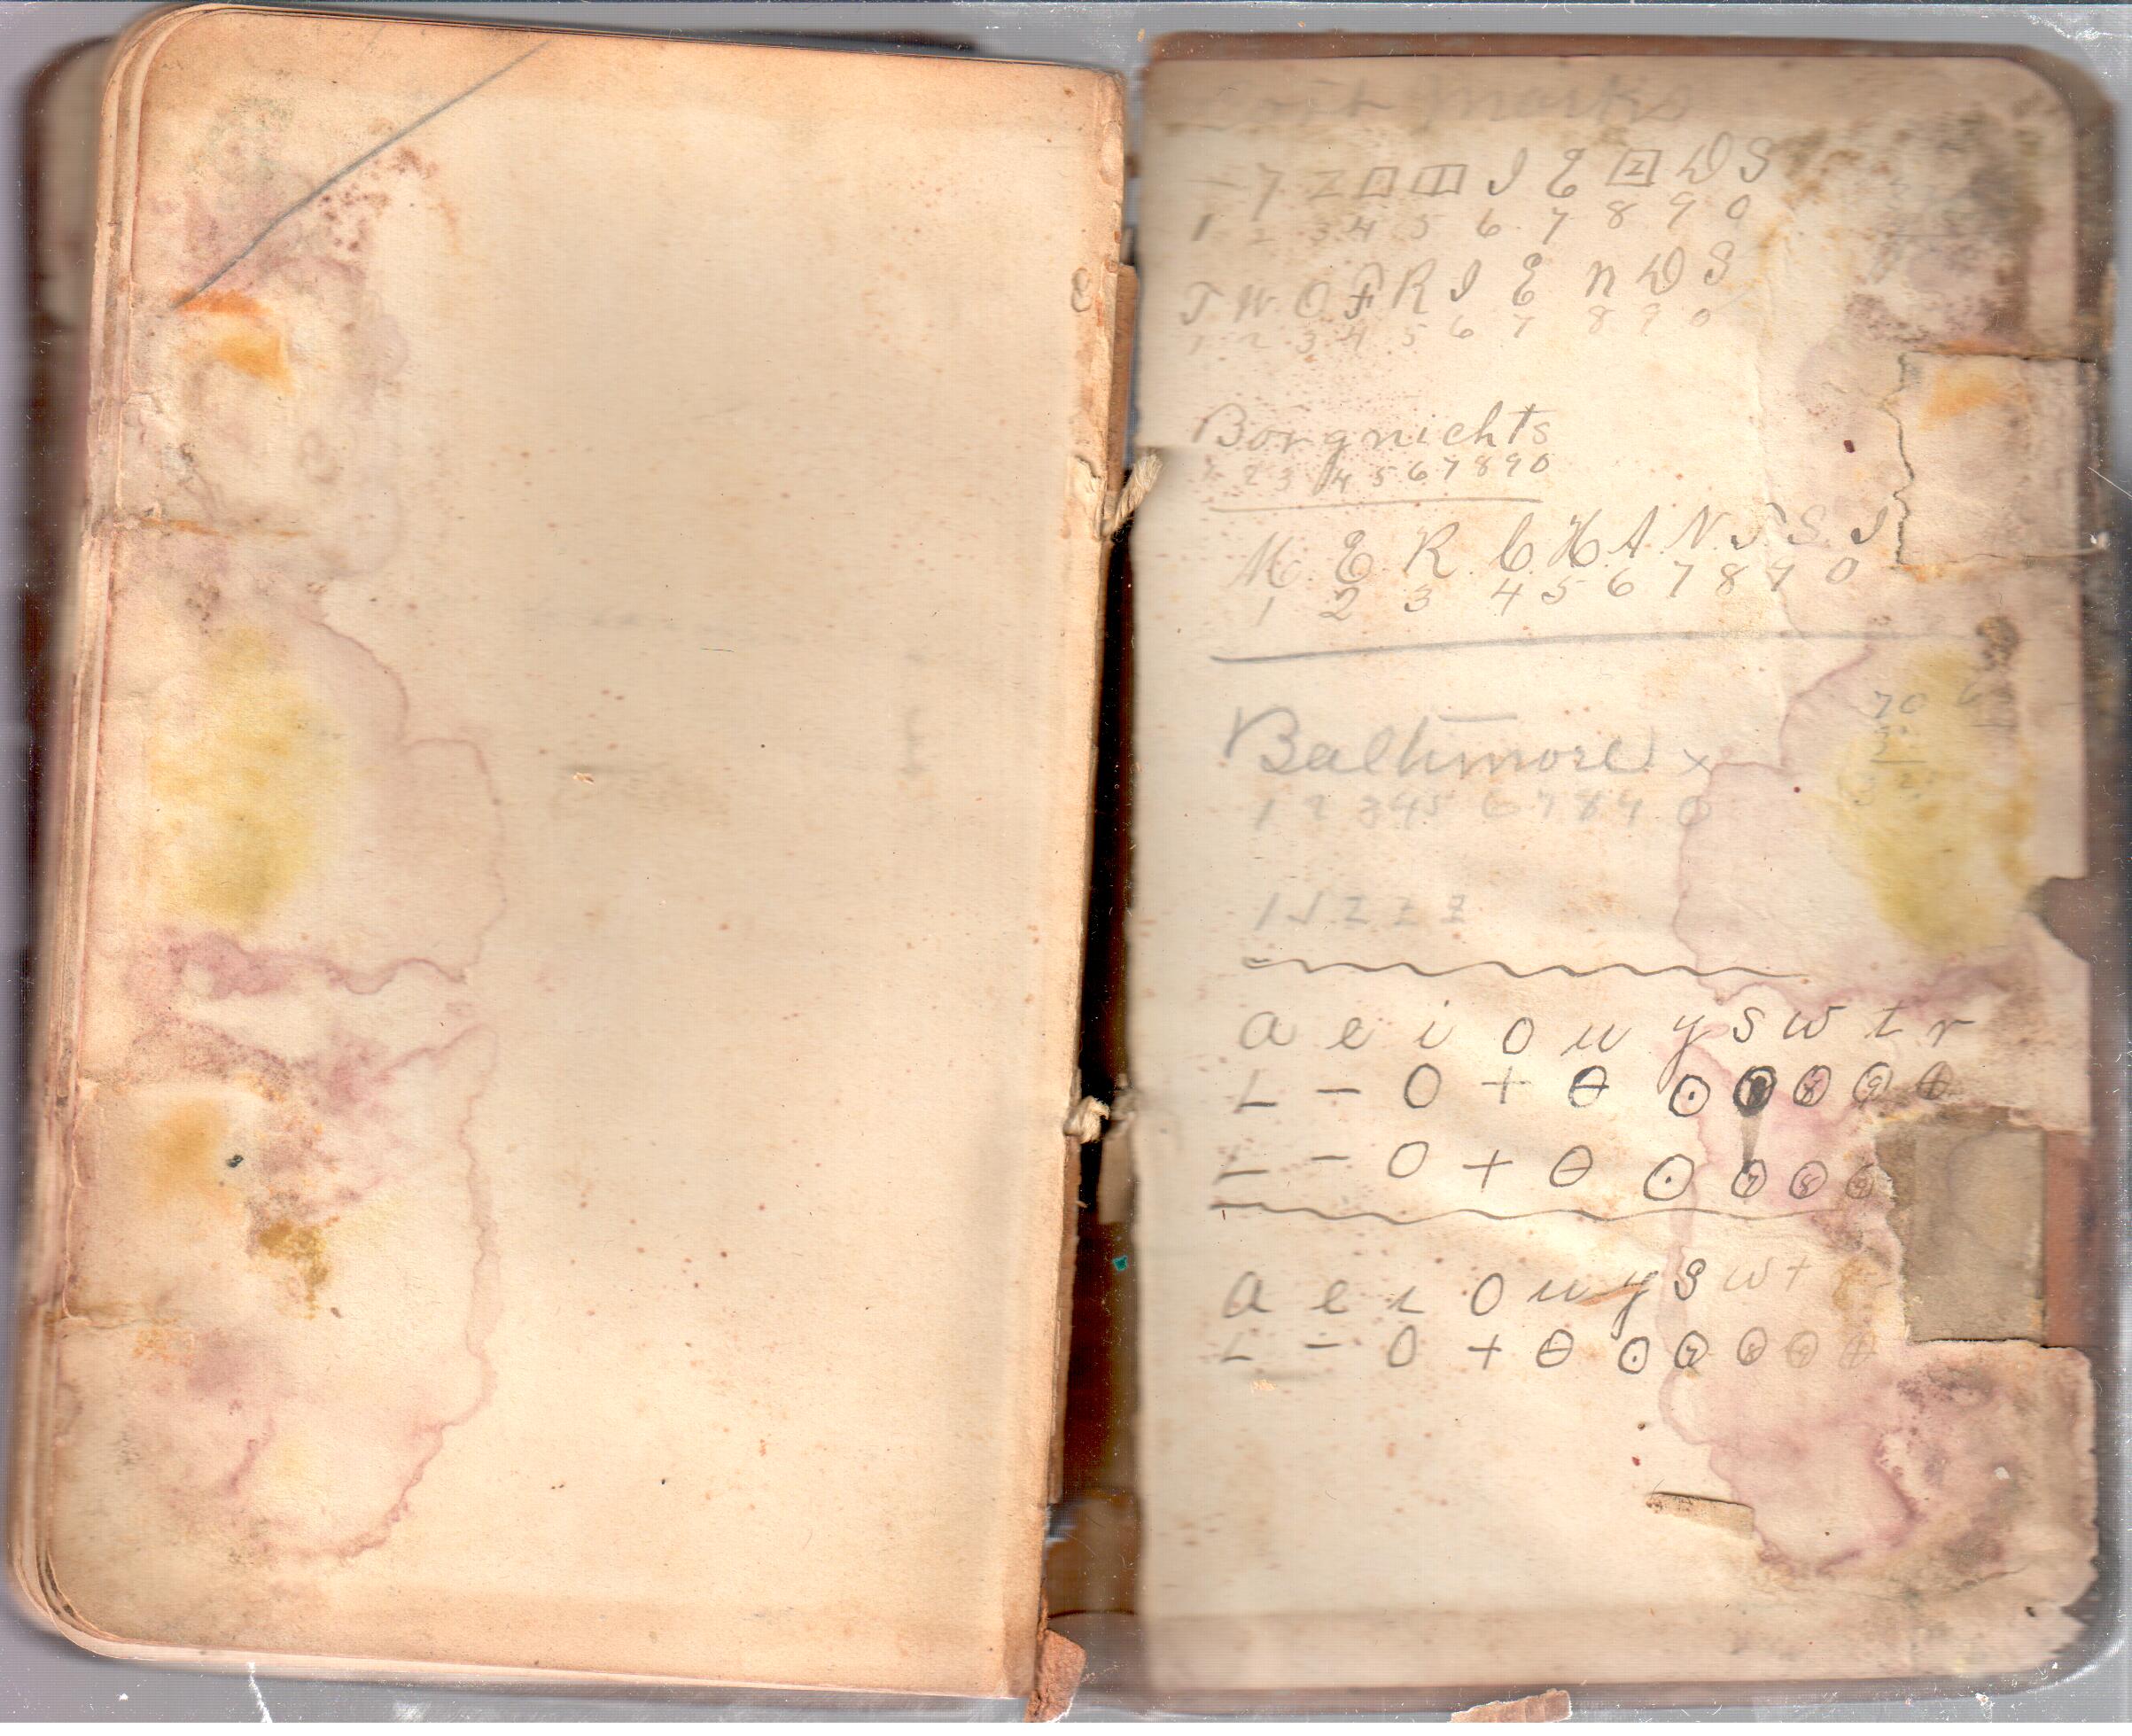 Cost Marks
— 7 Z □ I E Z D S
1 2 3 4 5 6 7 8 9 0
T W O F R I E N D S
1 2 3 4 5 6 7 8 9 0
Borgnichts
1 2 3 4 5 6 7 8 9 0
M E R C H A N T S I
1 2 3 4 5 6 7 8 9 0
Baltimore x
1 2 3 4 5 6 7 8 9 0
70
a e i o u y s w t r
L – O + Θ ⊙ ⑦ ⑧ ⑨ ⊕
L – O + Θ ⊙ ⑦ ⑧ ⑨
a e i o u y s w t
L – O + Θ ⊙ ⑦ ⑧ ⑨ ⊕